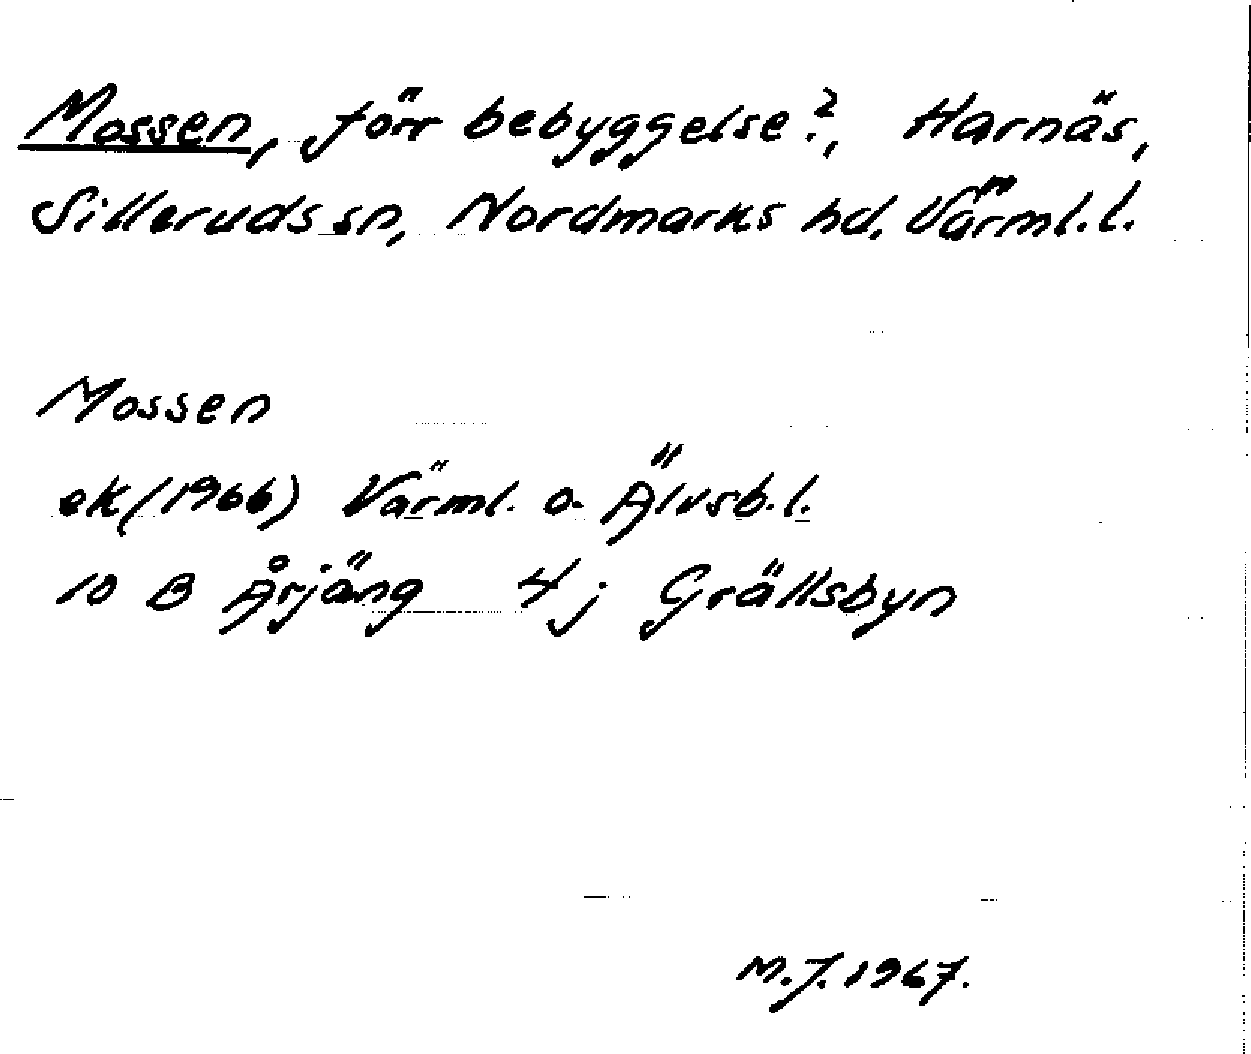 Mossen, förr bebyggelse?, Harnäs,
Silleruds sn, Nordmarks hd. Värml.l.
Mossen
ek (1966) Värml. o. Älvsb.l.
10 B Årjäng 4 j Grällsbyn
M.J. 1967.